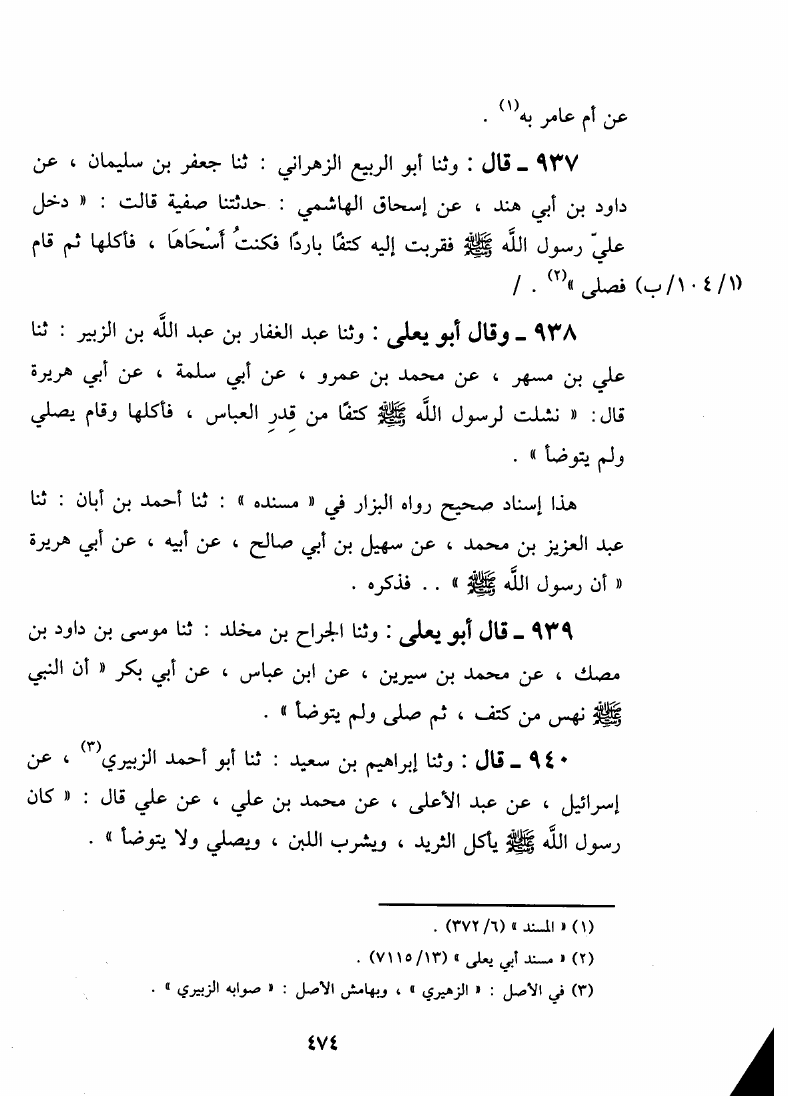 عن أم عامر به(١) .
٩٣٧ ـ قال : وثنا أبو الربيع الزهراني : ثنا جعفر بن سليمان ، عن
داود بن أبي هند ، عن إسحاق الهاشمي : حدثتنا صفية قالت : « دخل
عليّ رسول اللَّه ﷺ فقربت إليه كتفًا باردًا فكنتُ أَسْحَاهَا ، فأكلها ثم قام
فصلى »(٢) . / (١/١٠٤/ب)
٩٣٨ ـ وقال أبو يعلى : وثنا عبد الغفار بن عبد اللَّه بن الزبير : ثنا
علي بن مسهر ، عن محمد بن عمرو ، عن أبي سلمة ، عن أبي هريرة
قال: « نشلت لرسول اللَّه ﷺ كتفًا من قِدرِ العباس ، فأكلها وقام يصلي
ولم يتوضأ » .
هذا إسناد صحيح رواه البزار في « مسنده » : ثنا أحمد بن أبان : ثنا
عبد العزيز بن محمد ، عن سهيل بن أبي صالح ، عن أبيه ، عن أبي هريرة
« أن رسول اللَّه ﷺ » . . فذكره .
٩٣٩ ـ قال أبو يعلى : وثنا الجراح بن مخلد : ثنا موسى بن داود بن
مصك ، عن محمد بن سيرين ، عن ابن عباس ، عن أبي بكر « أن النبي
ﷺ نهس من كتف ، ثم صلى ولم يتوضأ » .
٩٤٠ ـ قال : وثنا إبراهيم بن سعيد : ثنا أبو أحمد الزبيري(٣) ، عن
إسرائيل ، عن عبد الأعلى ، عن محمد بن علي ، عن علي قال : « كان
رسول اللَّه ﷺ يأكل الثريد ، ويشرب اللبن ، ويصلي ولا يتوضأ » .
(١) « المسند » (٦/٣٧٢) .
(٢) « مسند أبي يعلى » (١٣/٧١١٥) .
(٣) في الأصل : « الزهيري » ، وبهامش الأصل : « صوابه الزبيري » .
٤٧٤